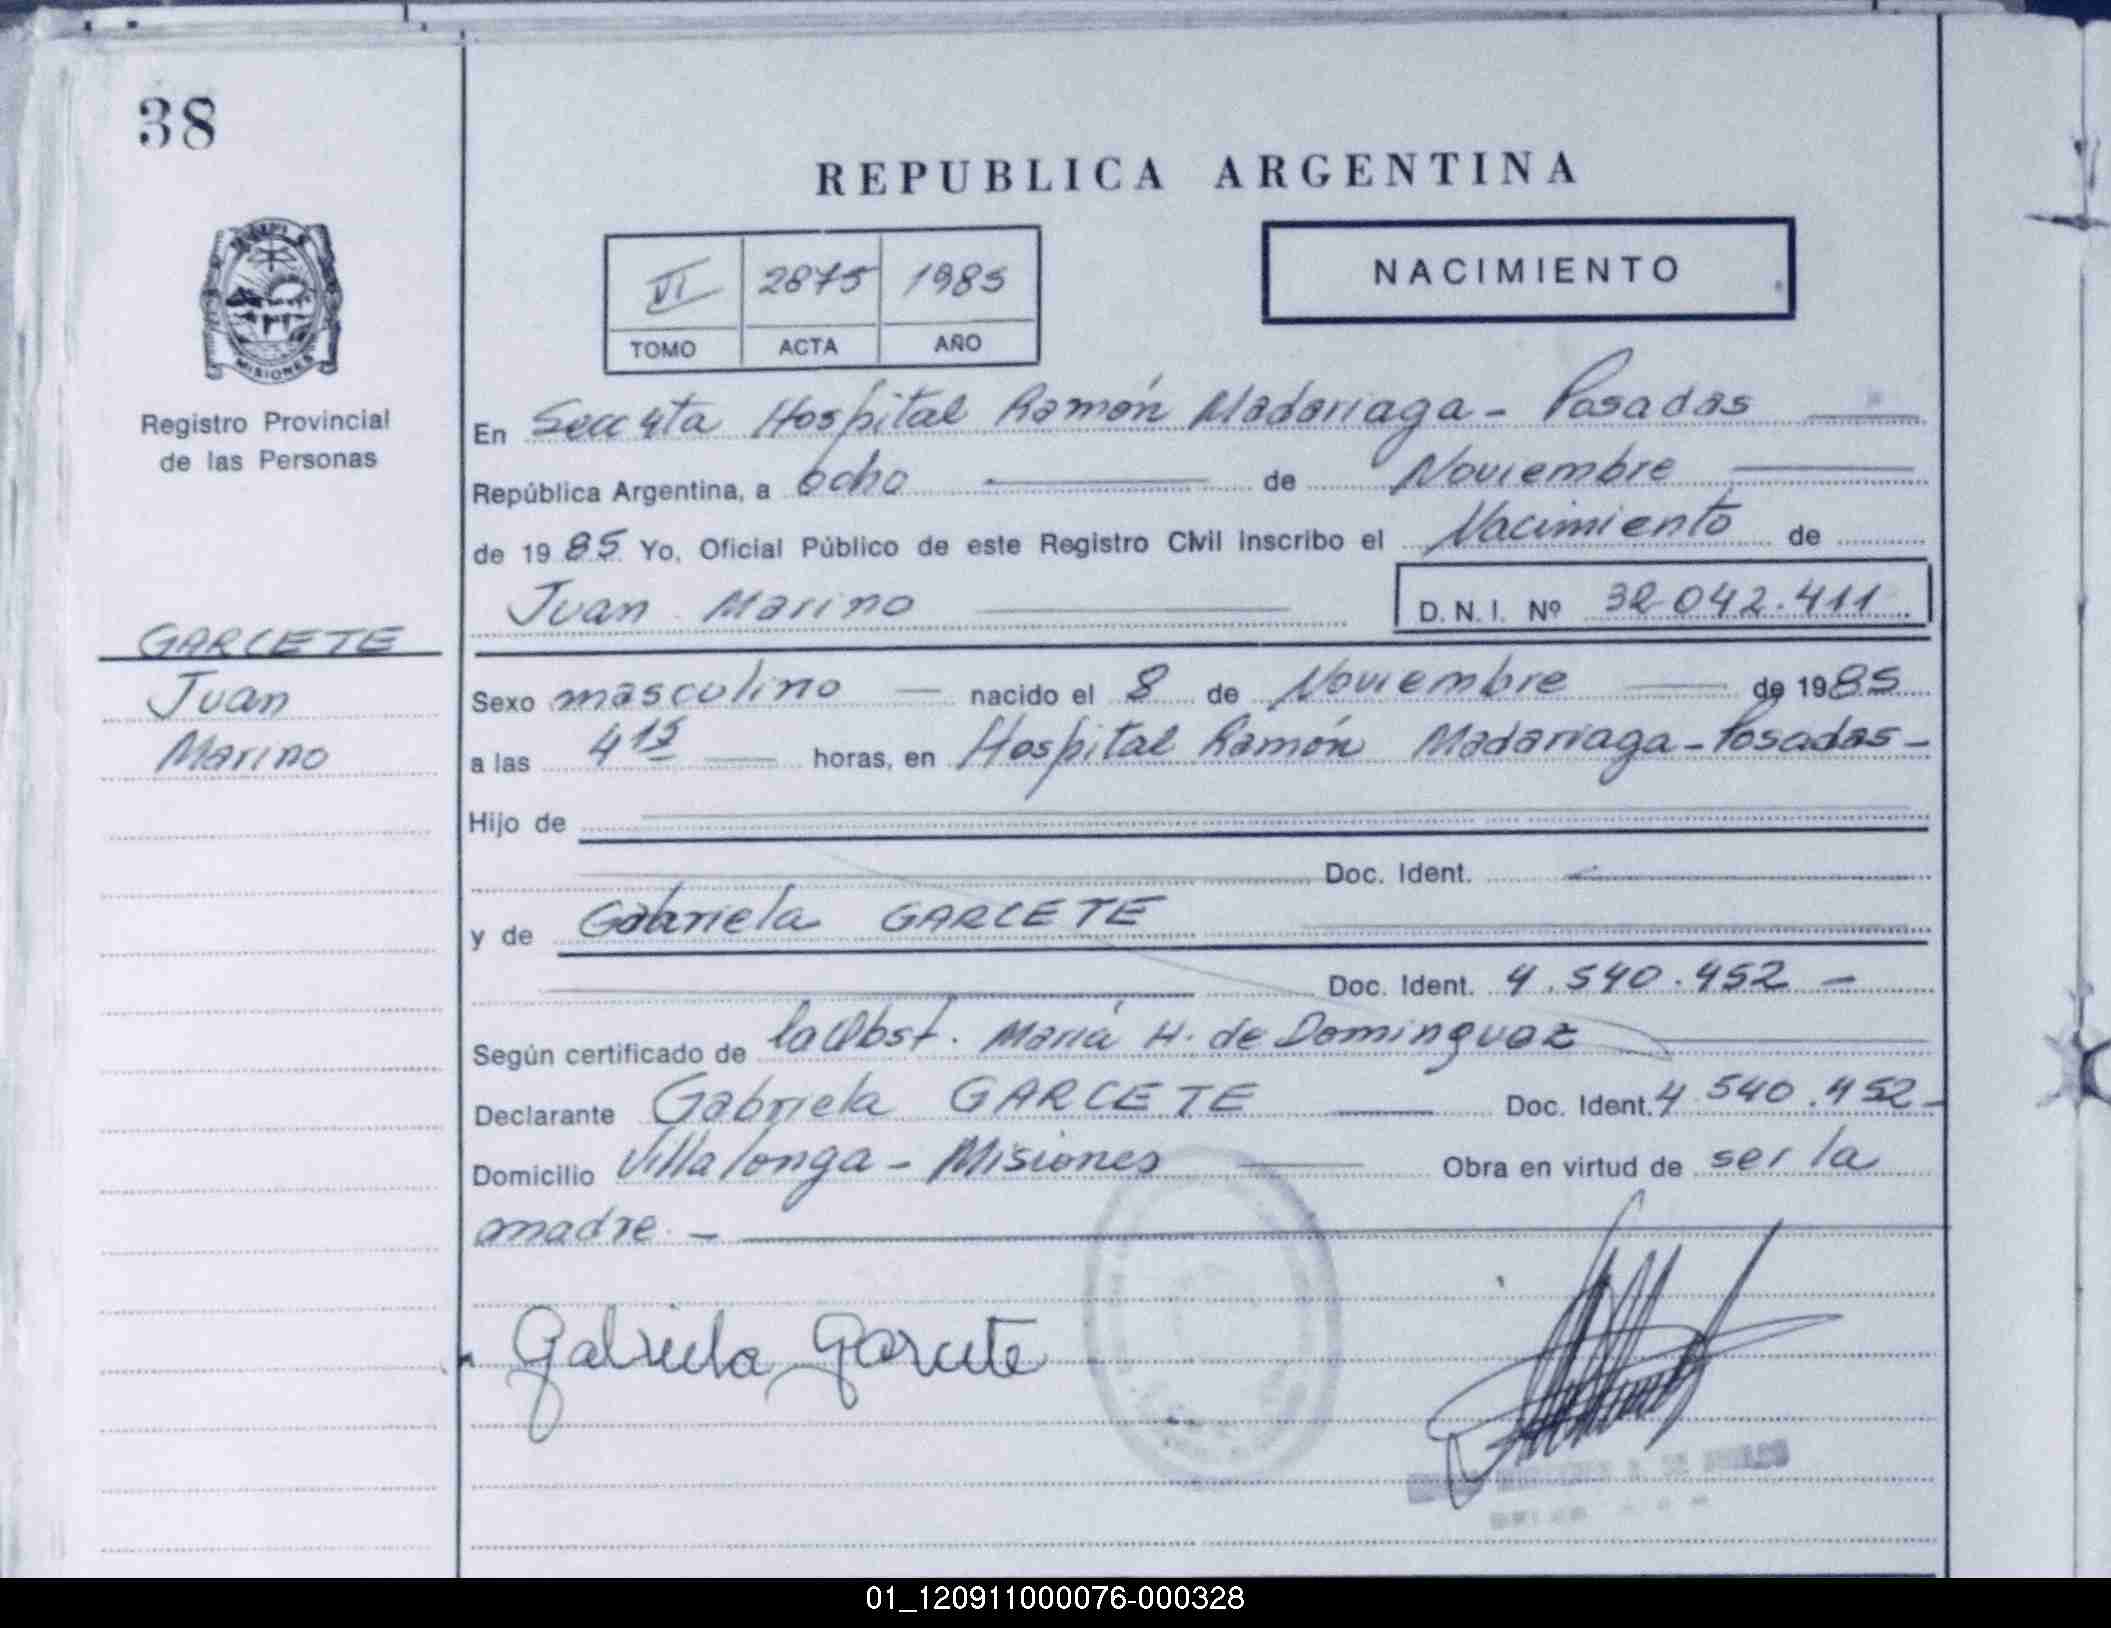 38
REPUBLICA ARGENTINA
NACIMIENTO
VI 2875 1985
TOMO ACTA AÑO
MISIONES
Registro Provincial
de las Personas
En Secc 4ta Hospital Ramón Madariaga - Posadas
República Argentina, a ocho de Noviembre
de 1985 Yo, Oficial Público de este Registro Civil inscribo el Nacimiento de
Juan Marino D.N.I. Nº 32.042.411
GARCETE
Juan
Marino
Sexo masculino nacido el 8 de Noviembre de 1985
a las 4 15 horas, en Hospital Ramón Madariaga - Posadas -
Hijo de
Doc. Ident.
y de Gabriela GARCETE
Doc. Ident. 4.540.452 -
Según certificado de la Obst. María H. de Dominguez
Declarante Gabriela GARCETE Doc. Ident. 4.540.452 -
Domicilio Villalonga - Misiones Obra en virtud de ser la
madre. -
Gabriela Garcete
01_120911000076-000328